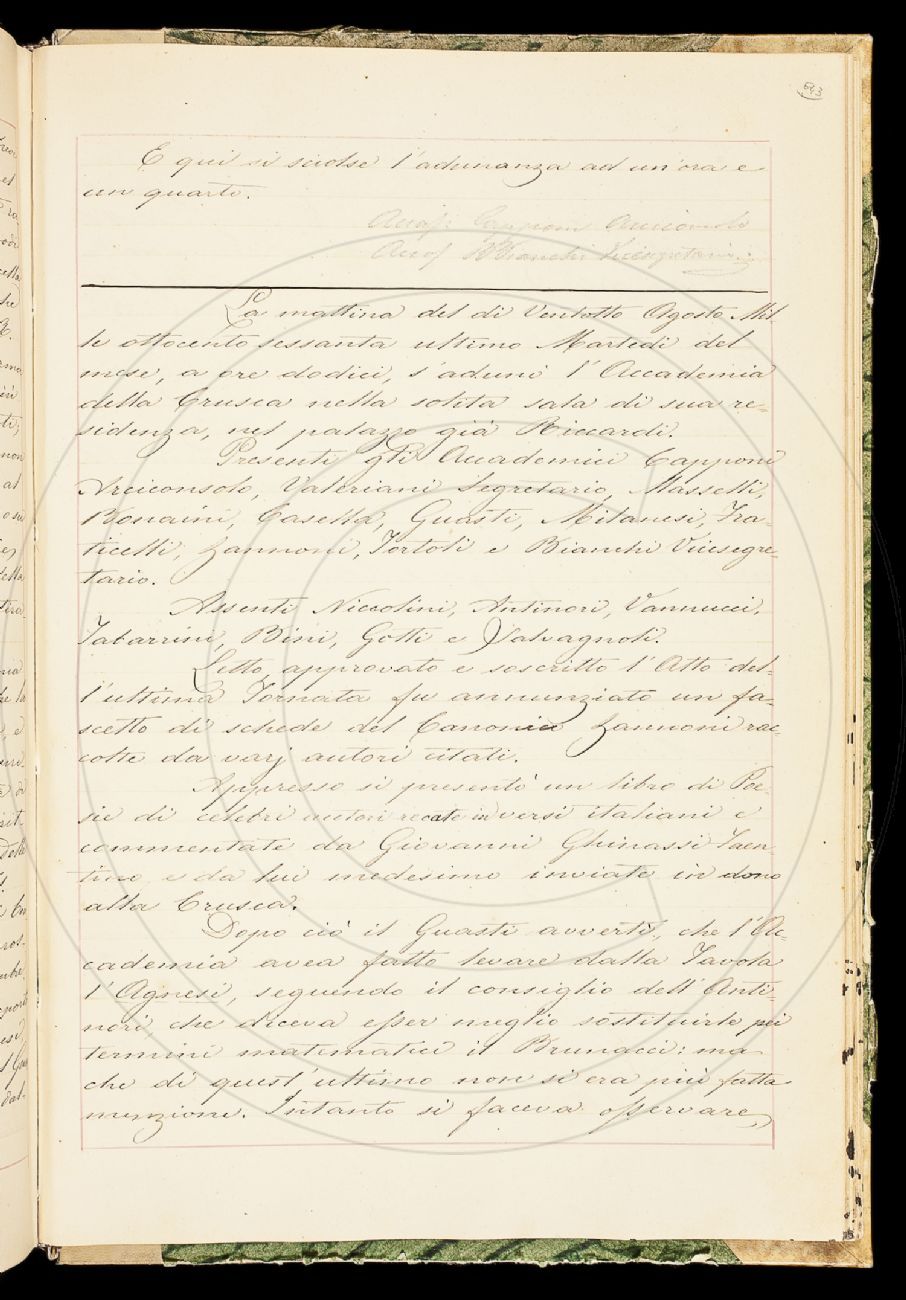 643
E qui si sciolse l'adunanza ad un'ora e
un quarto.
Capponi Arciconsolo
Bianchi Vicesegretario
La mattina del dì Ventotto Agosto Mil-
le ottocento sessanta ultimo Martedì del
mese, a ore dodici, s'adunò l'Accademia
della Crusca nella solita sala di sua re-
sidenza, nel palazzo già Riccardi.
Presenti gli Accademici Capponi
Arciconsolo, Valeriani Segretario, Masselli,
Bonaini, Casella, Guasti, Milanesi, Fra-
ticelli, Zannoni, Tortoli e Bianchi Vicesegre-
tario.
Assenti Niccolini, Antinori, Vannucci,
Tabarrini, Bini, Gotti e Salvagnoli.
Letto approvato e soscritto l'Atto del-
l'ultima Tornata fu annunziato un fa-
scetto di schede del Canonico Zannoni rac-
colte da varj autori citati.
Appresso si presentò un libro di Poe-
sie di celebri autori recate in versi italiani e
commentate da Giovanni Ghinassi Faen-
tino e da lui medesimo inviate in dono
alla Crusca.
Dopo ciò il Guasti avvertì, che l'Ac-
cademia avea fatto levare dalla Tavola
l'Agnesi, seguendo il consiglio dell'Anti-
nori che diceva esser meglio sostituirle pei
termini matematici il Brunacci: ma
che di quest'ultimo non si era più fatta
menzione. Intanto si faceva osservare,